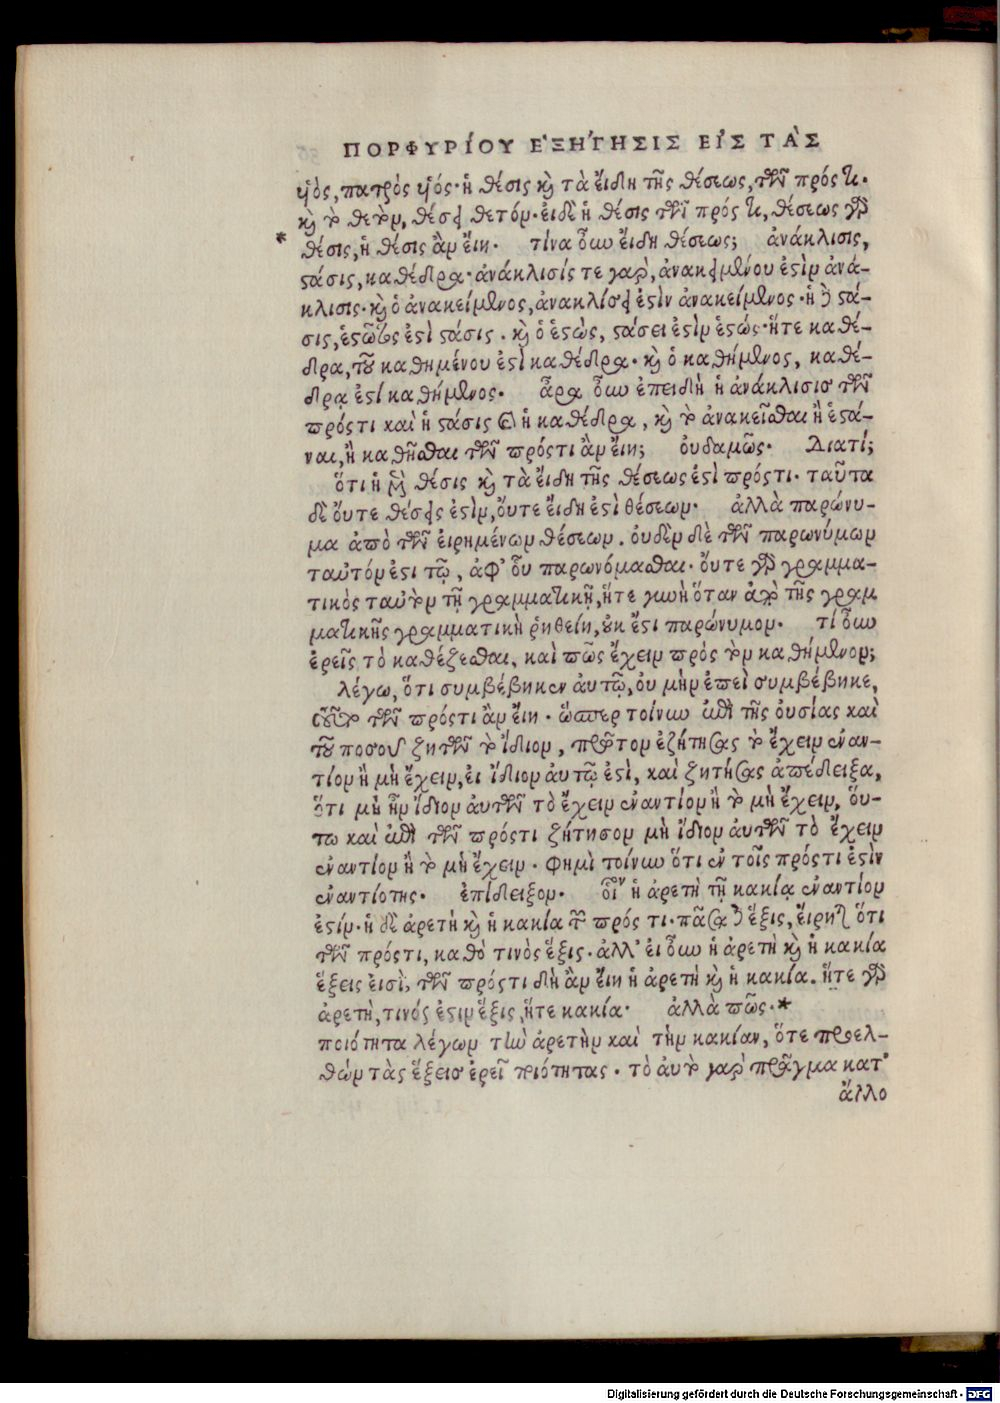 ΠΟΡΦΥΡΊΟΥ ἘΞΉΓΗΣΙΣ ΕἸΣ ΤᾺΣ
υἱὸς, πατρὸς υἱός· ἡ θέσις καὶ τὰ εἴδη τῆς θέσεως, τῶν πρός τι.
καὶ τὸ θετὸν, θέσει θετόν· εἰ δὲ ἡ θέσις τῶν πρός τι, θέσεως γὰρ
* θέσις, ἡ θέσις ἂν εἴη. τίνα οὖν εἴδη θέσεως; ἀνάκλισις,
στάσις, καθέδρα· ἀνάκλισίς τε γὰρ, ἀνακειμένου ἐστὶν ἀνά-
κλισις· καὶ ὁ ἀνακείμενος, ἀνακλίσει ἐστὶν ἀνακείμενος· ἡ δὲ στά-
σις, ἑστῶτος ἐστὶ στάσις. καὶ ὁ ἑστὼς, στάσει ἐστὶν ἑστώς· ἥτε καθέ-
δρα, τοῦ καθημένου ἐστὶ καθέδρα· καὶ ὁ καθήμενος, καθέ-
δρα ἐστὶ καθήμενος. ἆρα οὖν ἐπειδὴ ἡ ἀνάκλισις τῶν
πρόστι καὶ ἡ στάσις καὶ ἡ καθέδρα, καὶ τὸ ἀνακεῖσθαι ἢ ἑστά-
ναι, ἢ καθῆσθαι τῶν πρόστι ἂν εἴη; οὐδαμῶς. Διατί;
ὅτι ἡ μὲν θέσις καὶ τὰ εἴδη τῆς θέσεως ἐστὶ πρόστι· ταῦτα
δὲ οὔτε θέσεις ἐστὶν, οὔτε εἴδη ἐστὶ θέσεων. ἀλλὰ παρώνυ-
μα ἀπὸ τῶν εἰρημένων θέσεων. οὐδὲν δὲ τῶν παρωνύμων
ταὐτόν ἐστι τῷ, ἀφ' οὗ παρωνόμασται. οὔτε γὰρ γραμμα-
τικὸς ταὐτὸν τῇ γραμματικῇ, ἥτε γυνὴ ὅταν ἀπὸ τῆς γραμ
ματικῆς γραμματικὴ ῥηθείη, οὐκ ἔστι παρώνυμον. τί οὖν
ἐρεῖς τὸ καθέζεσθαι, καὶ πῶς ἔχειν πρὸς τὸν καθήμενον;
λέγω, ὅτι συμβέβηκεν αὐτῷ, οὐ μὴν ἐπεὶ συμβέβηκε,
τοῦτο τῶν πρόστι ἂν εἴη. ὥσπερ τοίνυν ἐπὶ τῆς οὐσίας καὶ
τοῦ ποσοῦ ζητῶν τὸ ἴδιον, πρῶτον ἐζήτησας τὸ ἔχειν ἐναν-
τίον ἢ μὴ ἔχειν, εἰ ἴδιον αὐτῷ ἐστὶ, καὶ ζητήσας ἀπέδειξα,
ὅτι μὴ ἦν ἴδιον αὐτῶν τὸ ἔχειν ἐναντίον ἢ τὸ μὴ ἔχειν, οὕ-
τω καὶ ἐπὶ τῶν πρόστι ζήτησον μὴ ἴδιον αὐτῶν τὸ ἔχειν
ἐναντίον ἢ τὸ μὴ ἔχειν. φημὶ τοίνυν ὅτι ἐν τοῖς πρόστι ἐστὶν
ἐναντίοτης. ἐπίδειξον. οἷον ἡ ἀρετὴ τῇ κακίᾳ ἐναντίον
ἐστίν· ἡ δὲ ἀρετὴ καὶ ἡ κακία τῶν πρός τι· πᾶσα δὲ ἕξις, εἴρηται ὅτι
τῶν πρόστι, καθὸ τινὸς ἕξις. ἀλλ' εἰ οὖν ἡ ἀρετὴ καὶ ἡ κακία
ἕξεις εἰσὶ, τῶν πρόστι δὴ ἂν εἴη ἡ ἀρετὴ καὶ ἡ κακία. ἥτε γὰρ
ἀρετὴ, τινός ἐστιν ἕξις, ἥτε κακία. ἀλλὰ πῶς. *
ποιότητα λέγων τὴν ἀρετὴν καὶ τὴν κακίαν, ὅτε προελ-
θὼν τὰς ἕξεις ἐρεῖ ποιότητας. τὸ αὐτὸ γὰρ πρᾶγμα κατ'
ἄλλο
Digitalisierung gefördert durch die Deutsche Forschungsgemeinschaft - DFG